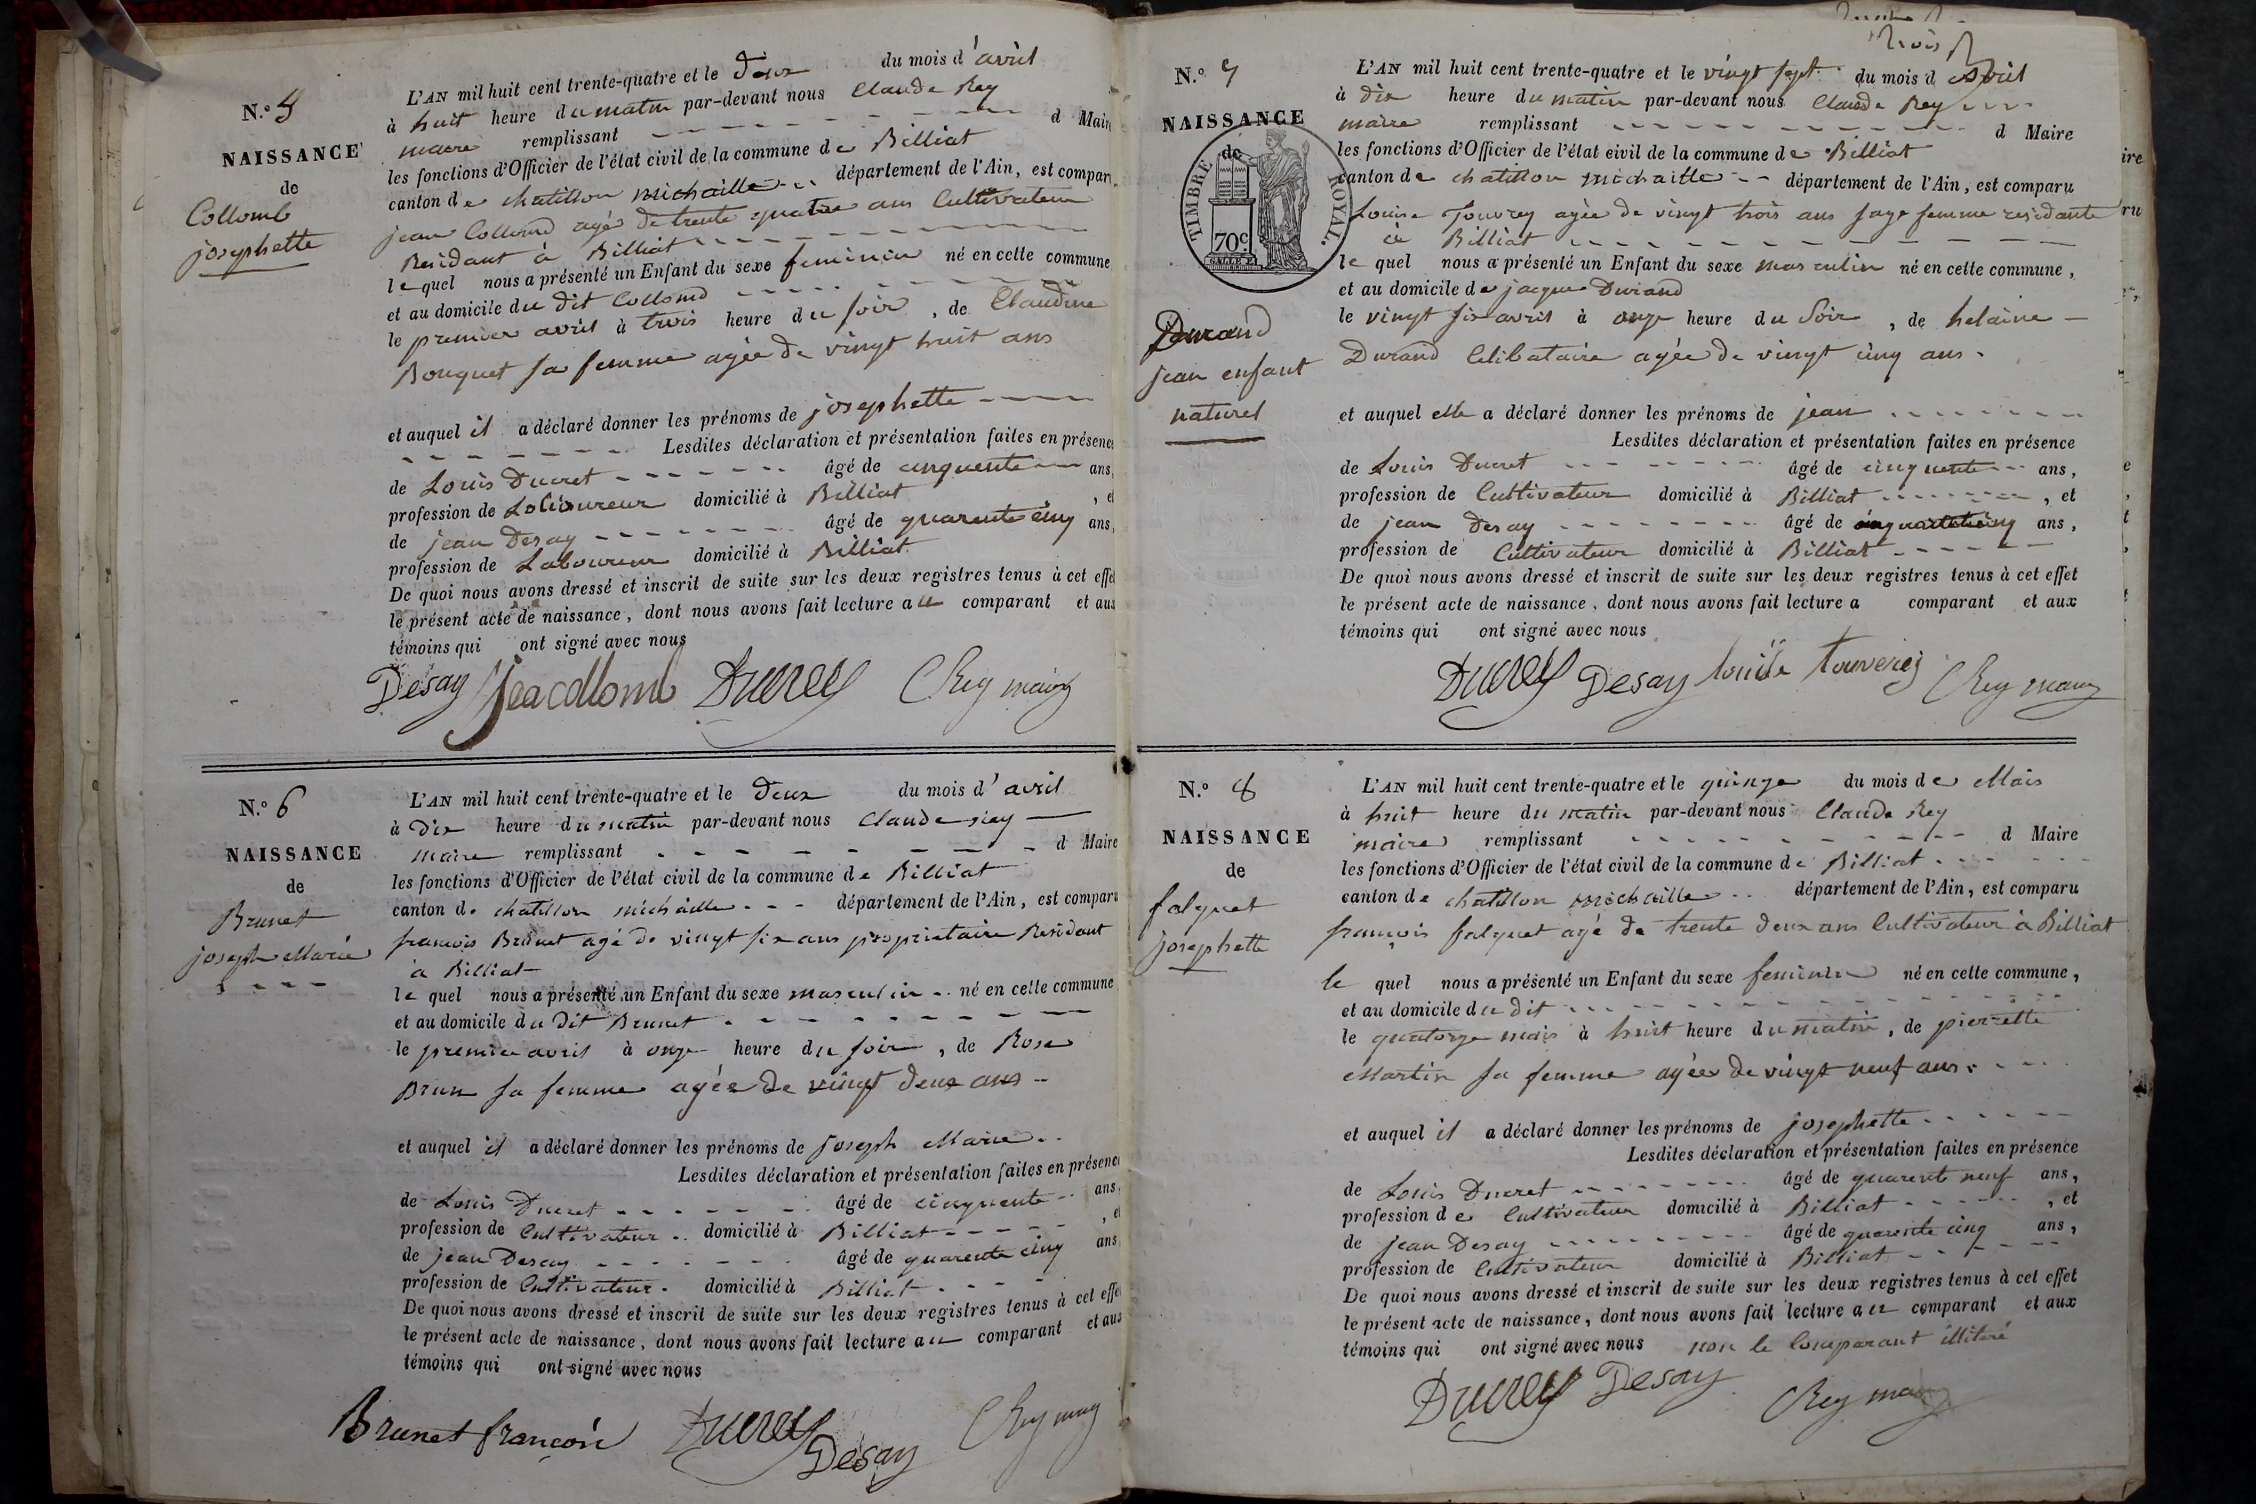 N.o 5
NAISSANCE
de
Collomb
josephette
L'AN mil huit cent trente-quatre et le deux du mois d'avril
à huit heure du matin par-devant nous Claude Rey
maire remplissant d Maire
les fonctions d'Officier de l'état civil de la commune de Billiat
canton de chatillon michaille département de l'Ain, est comparu
jean Collomb agé de trente quatre ans Cultivateur
Residant à Billiat
lequel nous a présenté un Enfant du sexe feminin né en cette commune
et au domicile du dit Collomb
le premier avril à trois heure du soir, de Claudine
Bouquet sa femme agée de vingt huit ans
et auquel il a déclaré donner les prénoms de josephette
Lesdites déclaration et présentation faites en présence
de Louis Ducret âgé de cinquente ans,
profession de Laboureur domicilié à Billiat, et
de jean Desay âgé de quarente cinq ans,
profession de Laboureur domicilié à Billiat
De quoi nous avons dressé et inscrit de suite sur les deux registres tenus à cet effet
le présent acte de naissance, dont nous avons fait lecture au comparant et aux
témoins qui ont signé avec nous
Desay Jea collomb Ducrey C Rey maire
N.o 6
NAISSANCE
de
Brunet
joseph Marie
L'AN mil huit cent trente-quatre et le deux du mois d'avril
à dix heure du matin par-devant nous Claude Rey
maire remplissant d Maire
les fonctions d'Officier de l'état civil de la commune de Billiat
canton de chatillon michaille département de l'Ain, est comparu
francois Brunet agé de vingt six ans proprietaire Residant
à Billiat
le quel nous a présenté un Enfant du sexe masculin né en cette commune
et au domicile du dit Brunet
le premier avril à onze heure du soir, de Rose
Brun sa femme agée de vingt deux ans
et auquel il a déclaré donner les prénoms de joseph Marie
Lesdites déclaration et présentation faites en présence
de Louis Ducret âgé de cinquente ans,
profession de Cultivateur domicilié à Billiat, et
de jean Desay âgé de quarente cinq ans
profession de Cultivateur domicilié à Billiat
De quoi nous avons dressé et inscrit de suite sur les deux registres tenus à cet effet
le présent acte de naissance, dont nous avons fait lecture au comparant et aux
témoins qui ont signé avec nous
Brunet françois Ducrey Desay C Rey maire
trois
N.o 7
NAISSANCE
de
TIMBRE ROYAL.
70c.
Durand
jean enfant
naturel
L'AN mil huit cent trente-quatre et le vingt sept du mois d avril
à dix heure du matin par-devant nous Claude Rey
maire remplissant d Maire
les fonctions d'Officier de l'état civil de la commune de Billiat
canton de chatillon michaille département de l'Ain, est comparu
Louise Touvrey agée de vingt trois ans sage femme residante
à Billiat
le quel nous a présenté un Enfant du sexe masculin né en cette commune,
et au domicile de jacque Durand
le vingt six avril à onze heure du soir, de helaine
Durand Celibataire agée de vingt cinq ans.
et auquel elle a déclaré donner les prénoms de jean
Lesdites déclaration et présentation faites en présence
de Louis Ducret âgé de cinquente ans,
profession de Cultivateur domicilié à Billiat, et
de jean Desay âgé de ans,
profession de Cultivateur domicilié à Billiat
De quoi nous avons dressé et inscrit de suite sur les deux registres tenus à cet effet
le présent acte de naissance, dont nous avons fait lecture a comparant et aux
témoins qui ont signé avec nous
Ducrey Desay C Rey maire
N.o 8
NAISSANCE
de
falquet
josephette
L'AN mil huit cent trente-quatre et le quinze du mois de Mais
à huit heure du matin par-devant nous Claude Rey
maire remplissant d Maire
les fonctions d'Officier de l'état civil de la commune de Billiat
canton de chatillon michaille département de l'Ain, est comparu
françois falquet agé de trente deux ans Cultivateur à Billiat
le quel nous a présenté un Enfant du sexe feminin né en cette commune,
et au domicile du dit
le quatorze mais à huit heure du matin, de pierrette
Martin sa femme agée de vingt neuf ans.
et auquel il a déclaré donner les prénoms de josephette
Lesdites déclaration et présentation faites en présence
de Louis Ducret âgé de quarente neuf ans,
profession de Cultivateur domicilié à Billiat, et
de jean Desay âgé de quarente cinq ans,
profession de Cultivateur domicilié à Billiat
De quoi nous avons dressé et inscrit de suite sur les deux registres tenus à cet effet
le présent acte de naissance, dont nous avons fait lecture au comparant et aux
témoins qui ont signé avec nous non le Comparant illiteré
Ducrey Desay C Rey maire